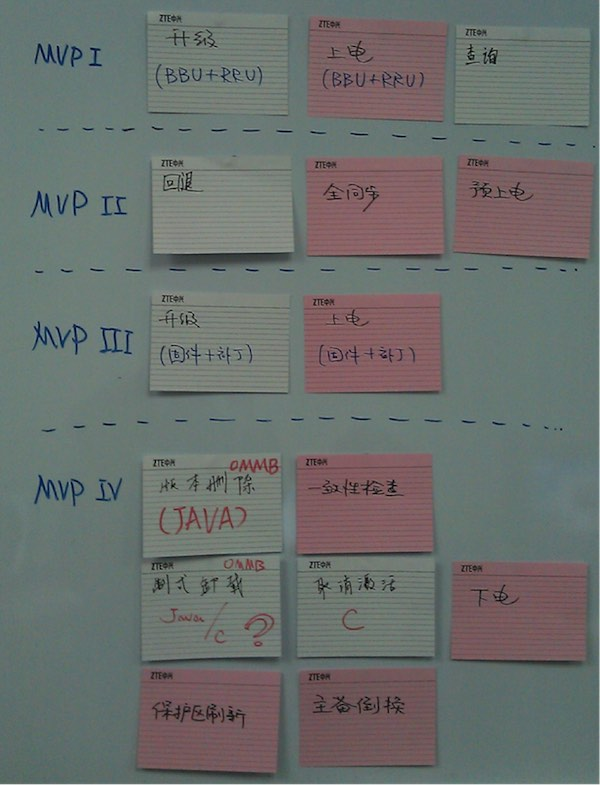 MVP I
ZTE中兴
升级
(BBU+RRU)
ZTE中兴
上电
(BBU+RRU)
ZTE中兴
查询
MVP II
ZTE中兴
回退
ZTE中兴
全同步
ZTE中兴
预上电
MVP III
ZTE中兴
升级
(固件+补丁)
ZTE中兴
上电
(固件+补丁)
MVP IV
ZTE中兴
OMMB
版本删除
(JAVA)
ZTE中兴
一致性检查
ZTE中兴
OMMB
制式卸载
Java/C ?
ZTE中兴
取消激活
C
ZTE中兴
下电
ZTE中兴
保护区刷新
ZTE中兴
主备倒换